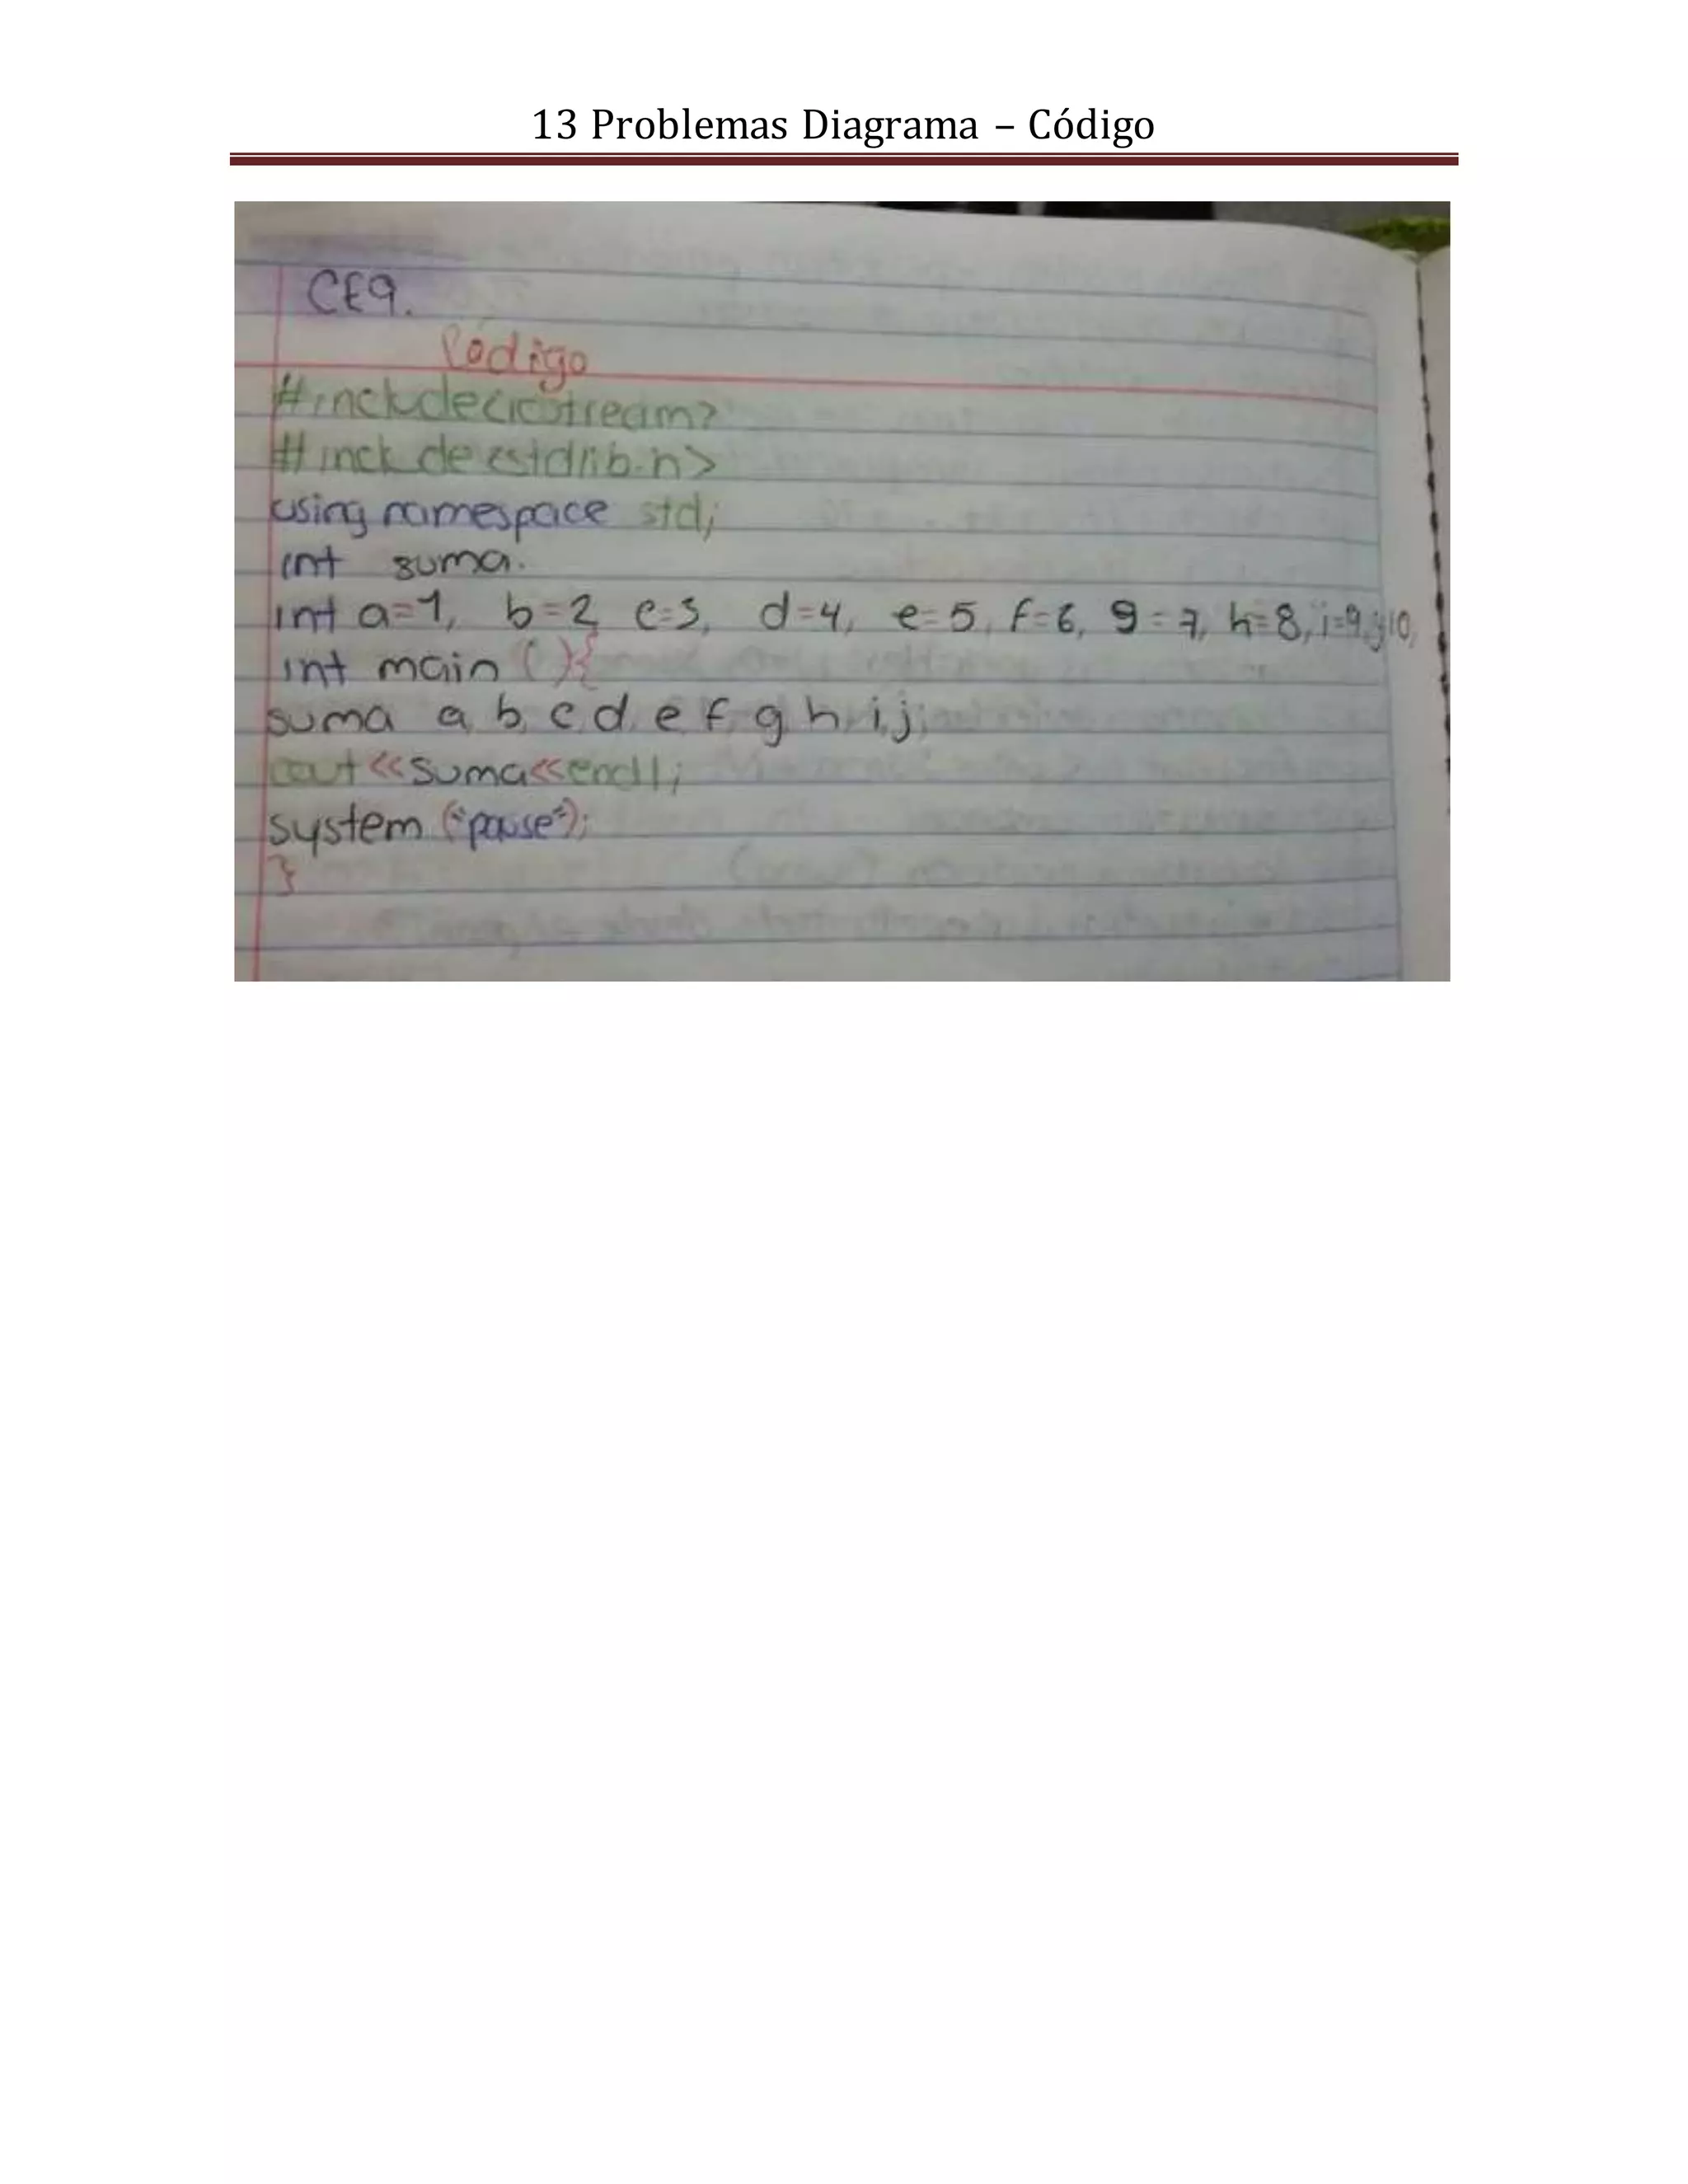 13 Problemas Diagrama – Código
CE9.
Código
#include<iostream>
#include<stdlib.h>
using namespace std;
int suma.
int a=1, b=2 c=3, d=4, e=5, f=6, g=7, h=8, i=9, j=10,
int main (){
suma a, b, c, d, e f g, h, i, j;
cout <<suma<<endl;
system ("pause");
}